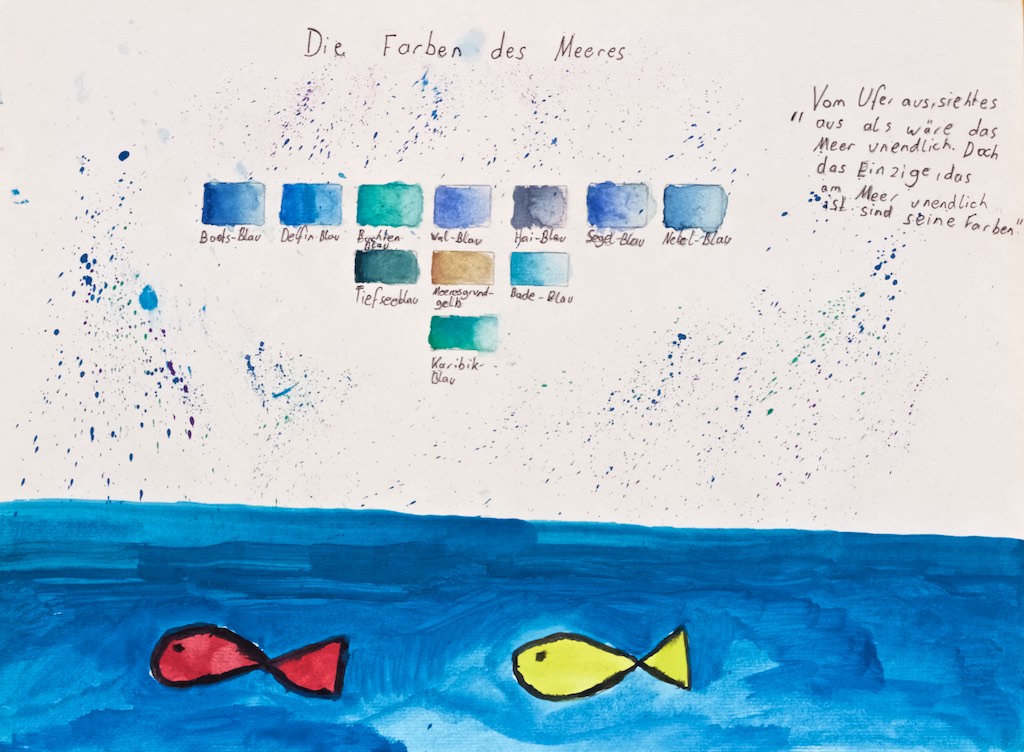 Die Farben des Meeres
"Vom Ufer aus, sieht es
aus als wäre das
Meer unendlich. Doch
das Einzige, das
am Meer unendlich
ist sind seine Farben"
Boots-Blau Delfin-Blau Buchten-Blau Wal-Blau Hai-Blau Segel-Blau Nebel-Blau
Tiefseeblau Meeresgrund-gelb Bade-Blau
Karibik-
Blau